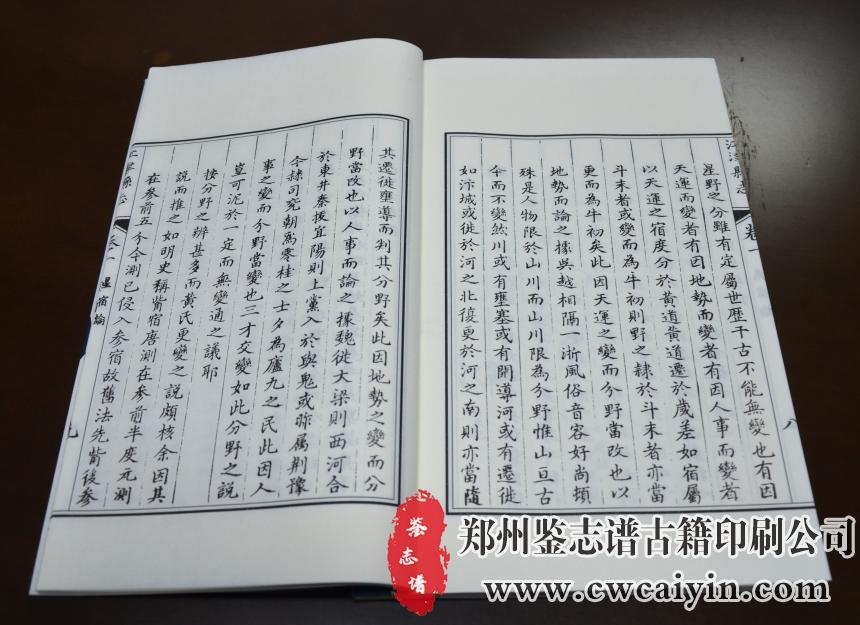 卷一
八
星野之分雖有定屬世歷千古不能無變也有因
天運而變者有因地勢而變者有因人事而變者
以天運之宿度分於黃道黃道遷於歲差如宿屬
斗末者或變而為牛初則野之隸於斗末者亦當
更而為牛初矣此因天運之變而分野當改也以
地勢而論之據吳越相隔一浙風俗音容好尚頓
殊是人物限於山川而山川限為分野惟山亘古
今而不變然川或有壅塞或有開導河或有遷徙
如汴城或徙於河之北復更於河之南則亦當隨
其遷徙壅導而判其分野矣此因地勢之變而分
野當改也以人事而論之據魏徙大梁則西河合
於東井秦拔宜陽則上黨入於輿鬼或雜屬荊豫
今隸司兖朝為零桂之士夕為廬九之民此因人
事之變而分野當變也三才交變如此分野之說
豈可泥於一定而無變通之議耶
按分野之辨甚多而黃氏更變之說頗核余因其
說而推之如明史稱觜宿唐測在參前半度元測
在參前五分今測已侵入參宿故舊法先觜後參
卷一
星宿論
九
鉴志谱
郑州鉴志谱古籍印刷公司
www.cwcaiyin.com